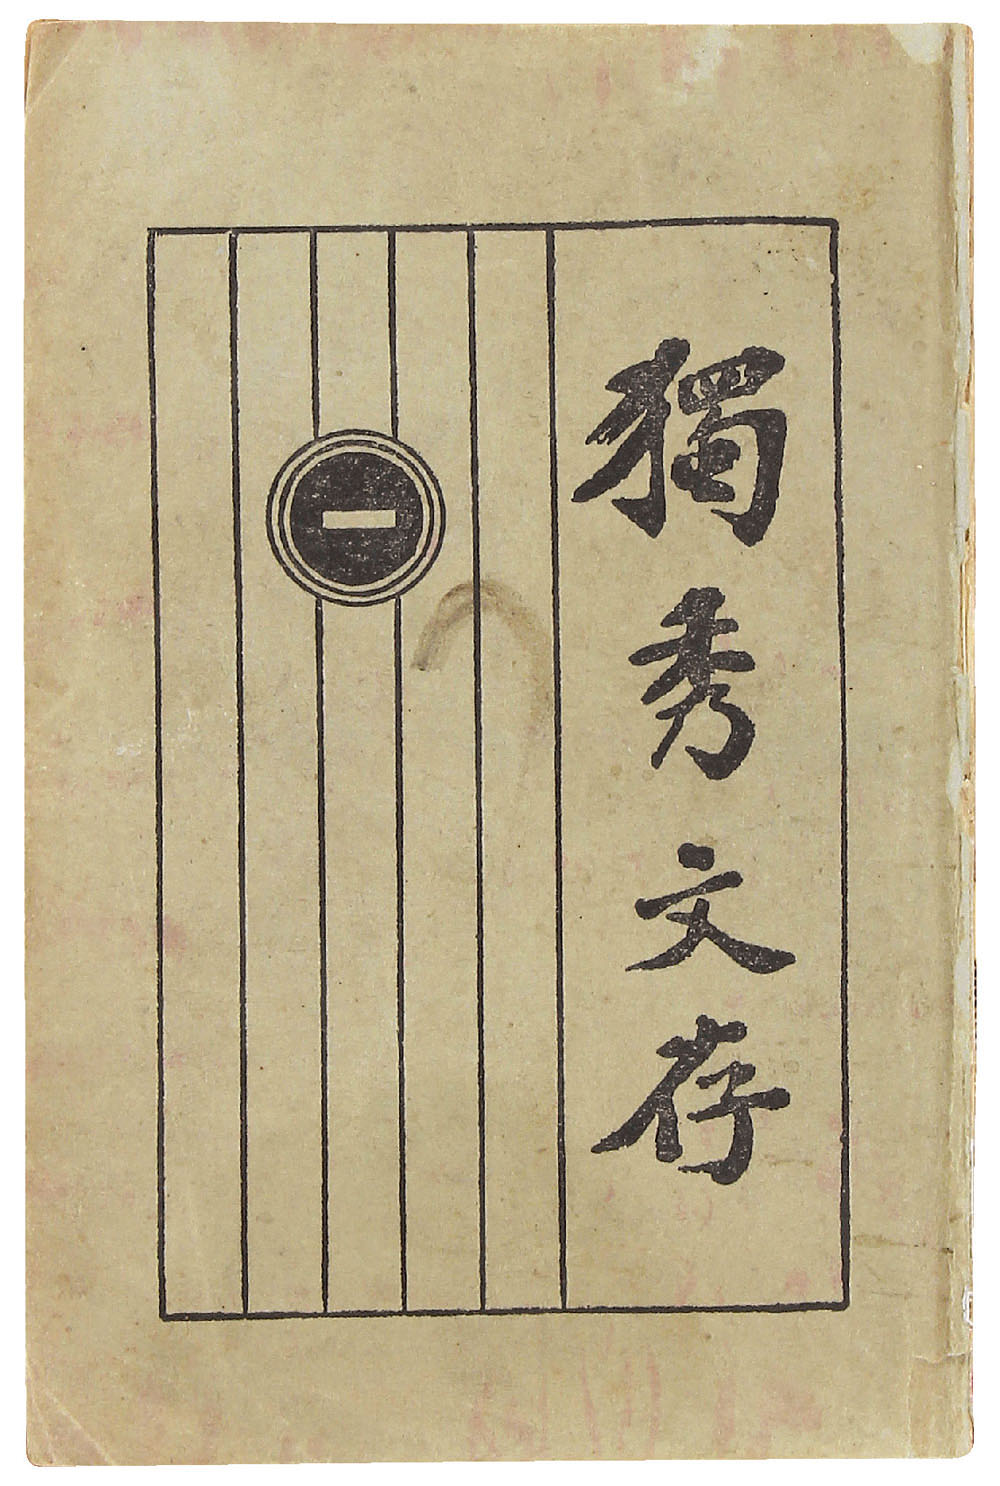 獨秀文存
一